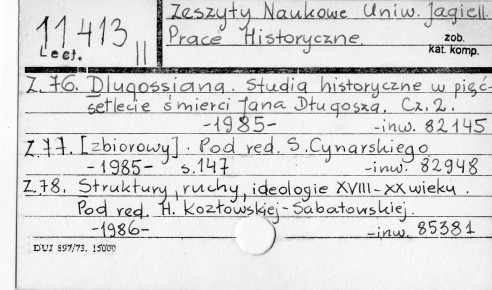 Zeszyty Naukowe Uniw. Jagiell.
11413 II
Lect.
Prace Historyczne. zob. kat. komp.
Z.76. Dlugossiana. Studia historyczne w pięć-
setlecie śmierci Jana Długosza. Cz. 2.
-1985- -inw. 82145
Z.77. [zbiorowy]. Pod red. S. Cynarskiego
-1985- s.147 -inw. 82948
Z.78. Struktury, ruchy, ideologie XVIII-XX wieku.
Pod red. H. Kozłowskiej-Sabatowskiej.
-1986- -inw. 85381
DUJ 897/73. 15000